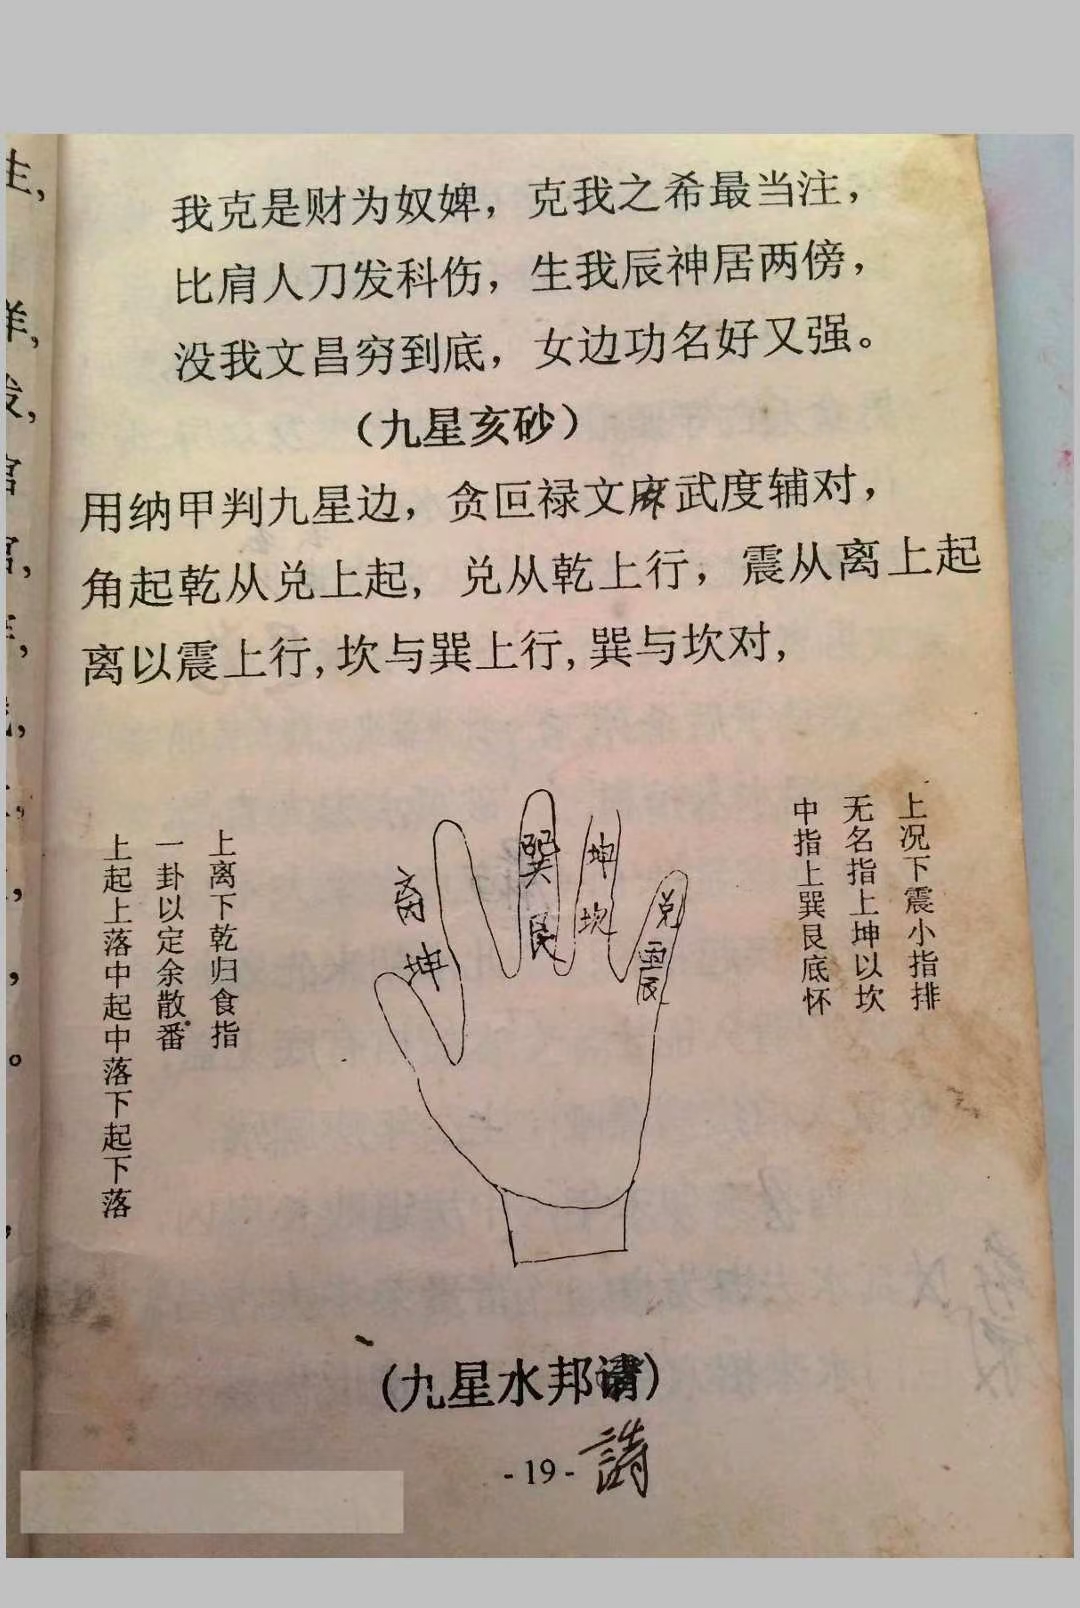 我克是财为奴婢，克我之希最当注，
比肩人刀发科伤，生我辰神居两傍，
没我文昌穷到底，女边功名好又强。
（九星亥砂）
用纳甲判九星边，贪叵禄文麻武度辅对，
角起乾从兑上起，兑从乾上行，震从离上起
离以震上行，坎与巽上行，巽与坎对，
上况下震小指排
无名指上坤以坎
中指上巽艮底怀
上离下乾归食指
一卦以定余散番
上起上落中起中落下起下落
离
坤
巽
艮
坤
坎
兑
震
（九星水邦请）
- 19 -
請